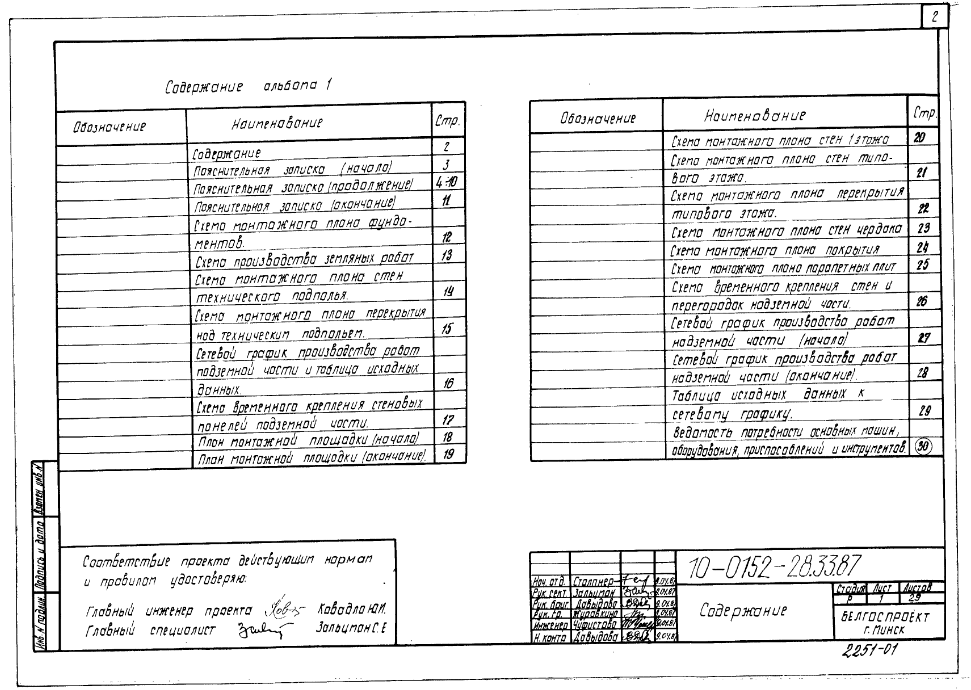 2
Содержание альбома 1
Обозначение Наименование Стр.
Содержание 2
Пояснительная записка (начало) 3
Пояснительная записка (продолжение) 4÷10
Пояснительная записка (окончание) 11
Схема монтажного плана фунда-
ментов. 12
Схема производства земляных работ 13
Схема монтажного плана стен
технического подполья. 14
Схема монтажного плана перекрытия
над техническим подпольем. 15
Сетевой график производства работ
подземной части и таблица исходных
данных 16
Схема временного крепления стеновых
панелей подземной части. 17
План монтажной площадки (начало) 18
План монтажной площадки (окончание). 19
Обозначение Наименование Стр.
Схема монтажного плана стен 1 этажа 20
Схема монтажного плана стен типо-
вого этажа. 21
Схема монтажного плана перекрытия
типового этажа. 22
Схема монтажного плана стен чердака 23
Схема монтажного плана покрытия 24
Схема монтажного плана парапетных плит 25
Схема временного крепления стен и
перегородок надземной части. 26
Сетевой график производства работ
надземной части (начало) 27
Сетевой график производства работ
надземной части (окончание). 28
Таблица исходных данных к
сетевому графику. 29
Ведомость потребности основных машин,
оборудования, приспособлений и инструментов. 30
Соответствие проекта действующим нормам
и правилам удостоверяю:
Главный инженер проекта Кавадло Ю.И.
Главный специалист Зальцман С.Е
Инв. № подлин. Подпись и дата Взамен инв. №
Нач. отд. Столпнер
Рук. сект. Зальцман
Рук. бриг. Давыдова
Рук. гр. Журавкина
Инженер Чуфистова
Н. контр Давыдова
10-0152-28.33.87
Содержание
Стадия Лист Листов
Р 1 29
БЕЛГОСПРОЕКТ
г. Минск
2251-01